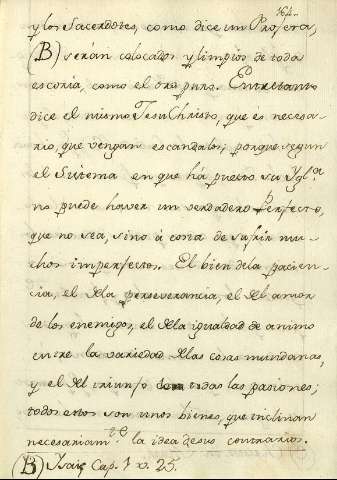 164..
y los Sacerdotes, como dice un Profeta,
(B) serán colocados y limpios de toda
escoria, como el oro puro. Entretanto
dice el mismo Jesu Christo, que es necesa-
rio, que vengan escandalos; porque segun
el Sistema en que há puesto su Ygl.ª
no puede haver un verdadero Perfecto,
que no sea, sino á costa de sufrir mu-
chos imperfectos. El bien dela pacien-
cia, el dela perseverancia, el del amor
de los enemigos, el dela igualdad de animo
entre la variedad delas cosas mundanas,
y el del triunfo de todas las pasiones;
todos estos son unos bienes, que inclinan
necesariam.te la idea desus contrarios.
(B) Isai. Cap. 1 v. 25.